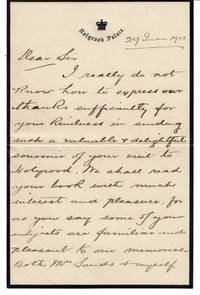 Holyrood Palace.
29 June 1901
Dear Sir
I really do not
know how to express our
thanks sufficiently for
your kindness in sending
such a valuable & delightful
souvenir of your visit to
Holyrood. We shall read
your book with much
interest and pleasure, for
as you say some of your
subjects are familiar and
pleasant to our memories
Both Mrs Sands & myself